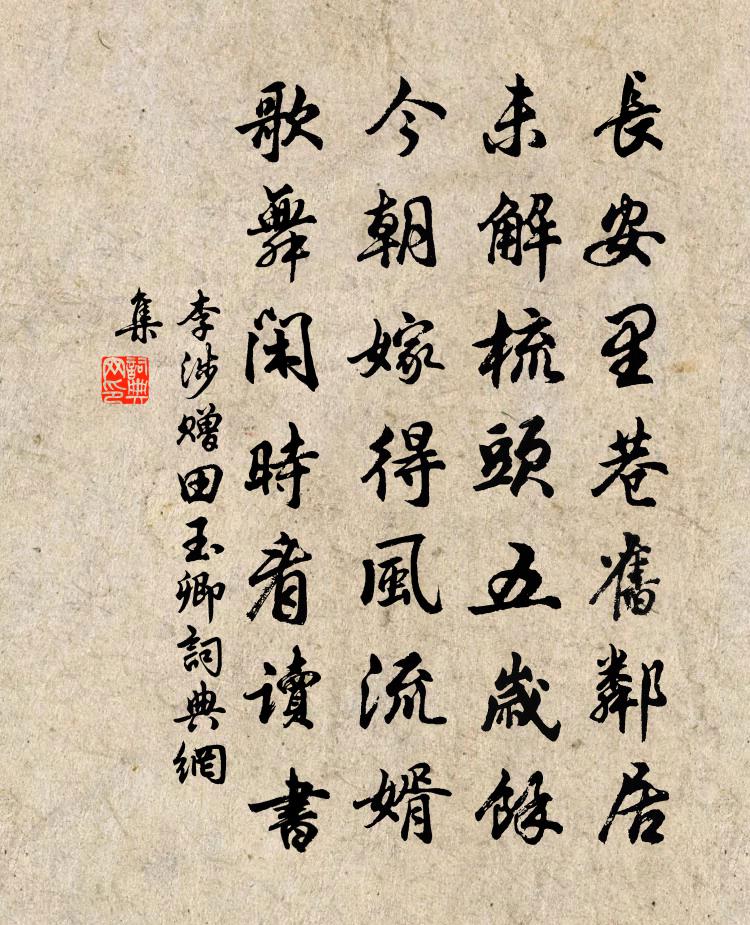 長安里巷舊鄰居
未解梳頭五歲餘
今朝嫁得風流婿
歌舞閑時看讀書
李涉贈田玉卿詞典網
集
詞典